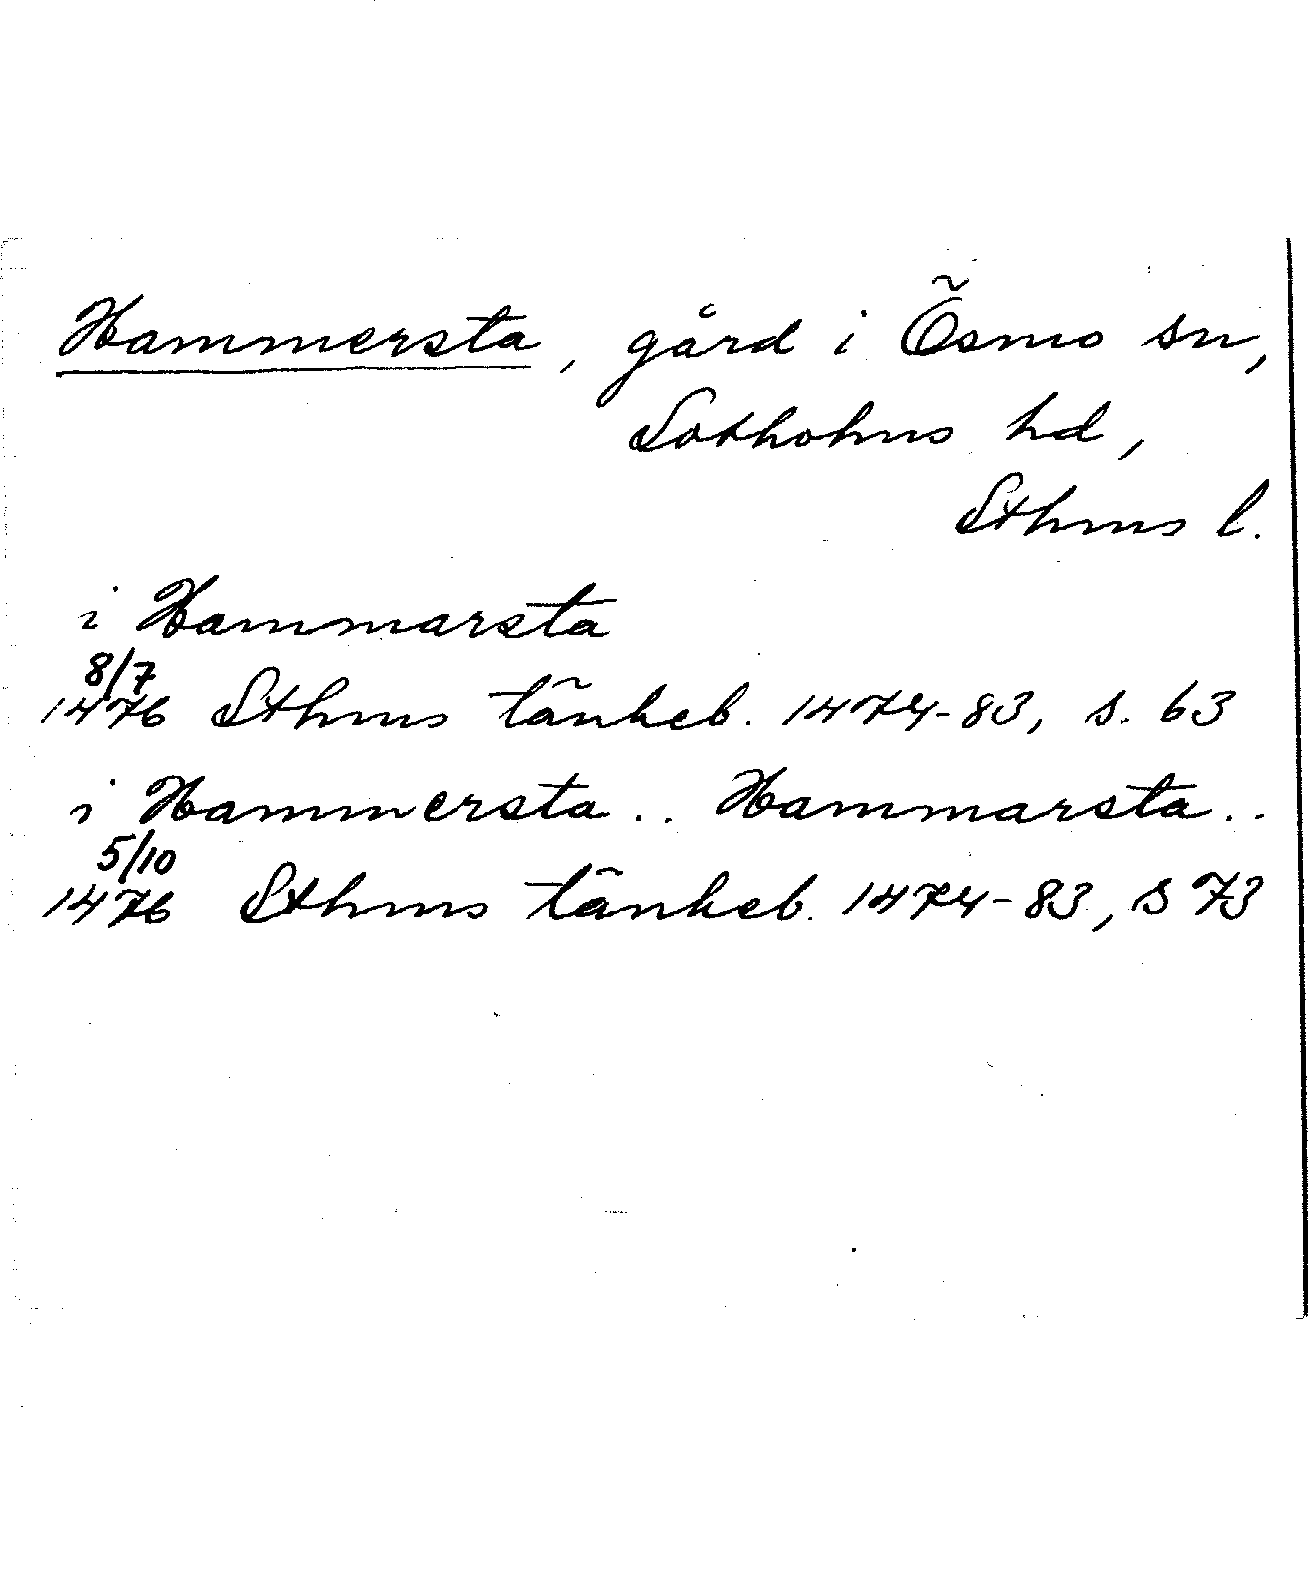 Hammersta, gård i Ösmo sn,
Sotholms hd,
Sthms l.
i Hammarsta
8/7
1476 Sthms tänkeb. 1474-83, s. 63
i Hammersta.. Hammarsta..
5/10
1476 Sthms tänkeb. 1474-83, s 73